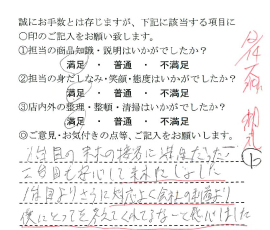 誠にお手数とは存じますが、下記に該当する項目に
〇印のご記入をお願い致します。
①担当の商品知識・説明はいかがでしたか?
満足 ・ 普通 ・ 不満足
②担当の身だしなみ・笑顔・態度はいかがでしたか?
満足 ・ 普通 ・ 不満足
③店内外の整理・整頓・清掃はいかがでしたか?
満足 ・ 普通 ・ 不満足
◎ご意見・お気付きの点等、ご記入をお願いします。
1台目の
2台目も安心して
1台目よりさらに対応よく会社の利益より
僕にとってを考えてくれてるなーと感心しました